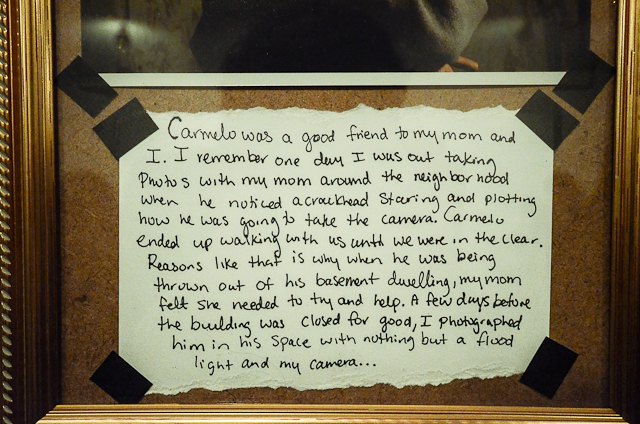 Carmelo was a good friend to my mom and
I. I remember one day I was out taking
Photos with my mom around the neighborhood
when he noticed a crackhead staring and plotting
how he was going to take the camera. Carmelo
ended up walking with us until we were in the clear.
Reasons like that is why when he was being
thrown out of his basement dwelling, my mom
felt she needed to try and help. A few days before
the building was closed for good, I photographed
him in his space with nothing but a flood
light and my camera...